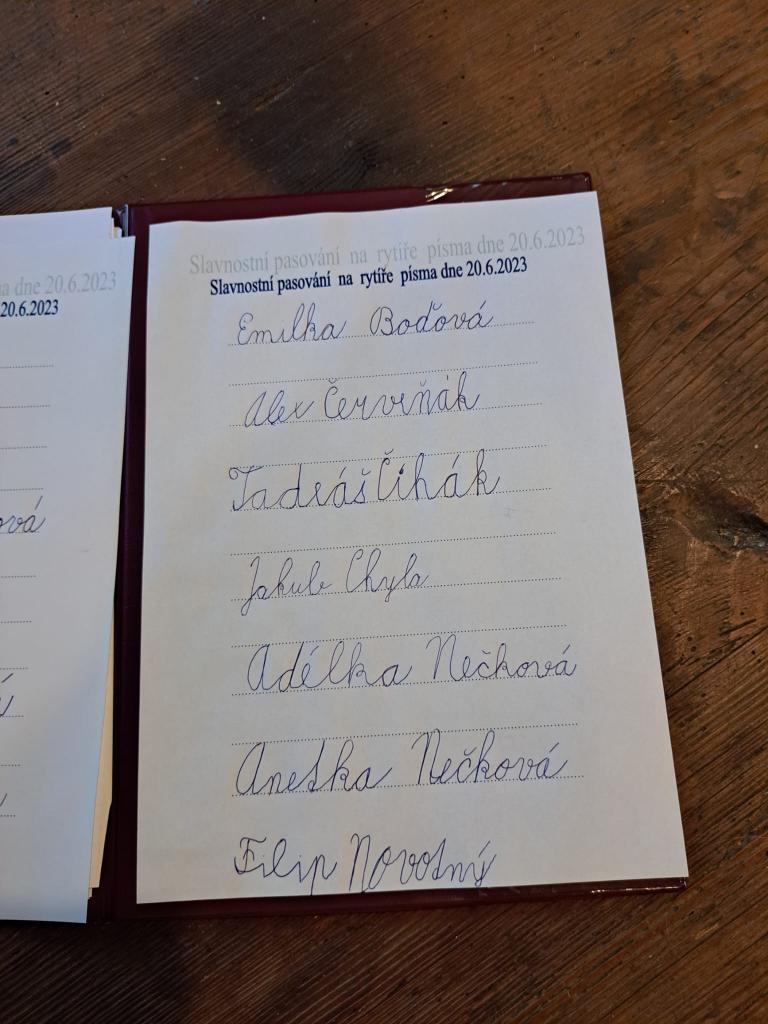 a dne 20.6.2023
20.6.2023
ová
Slavnostní pasování na rytíře písma dne 20.6.2023
Slavnostní pasování na rytíře písma dne 20.6.2023
Emilka Boďová
Alex Červeňák
Tadeáš Čihák
Jakub Chyla
Adélka Nečková
Anetka Nečková
Filip Novotný